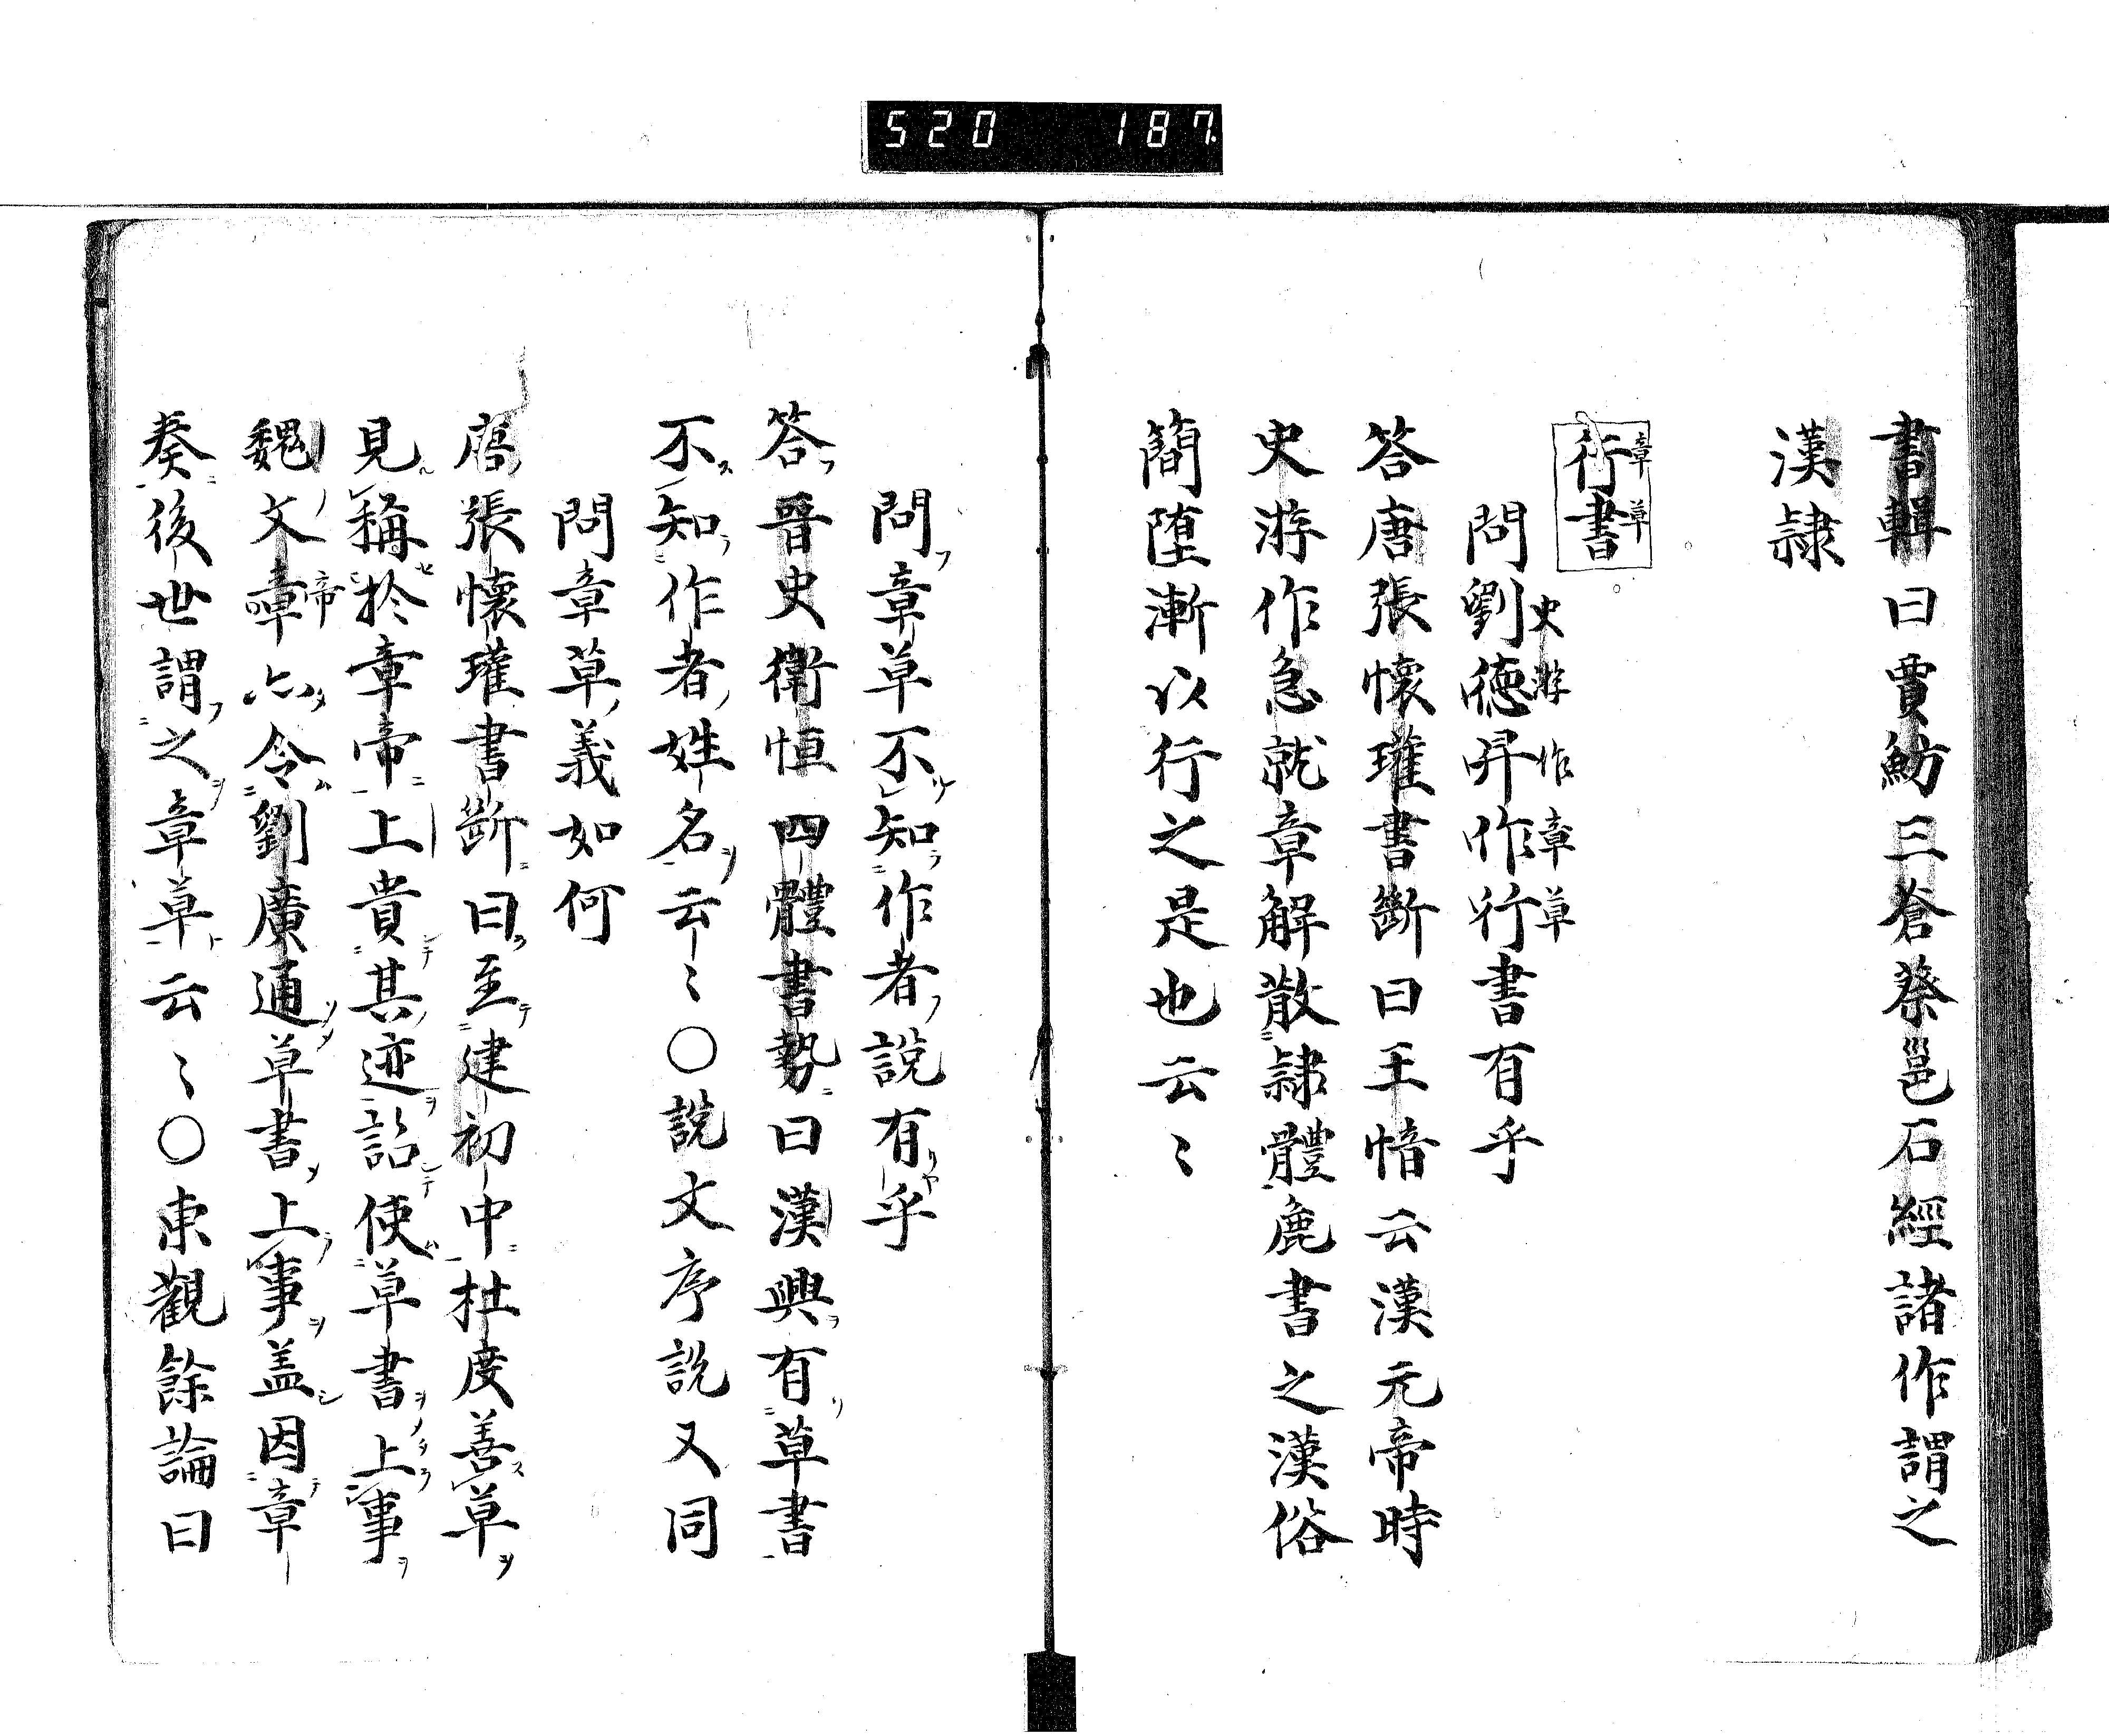 520 187
書輯曰賈魴三蒼蔡邕石經諸作謂之
漢隷
行書
章草
問劉徳昇作行書有乎
史游作章草
答唐張懐瓘書断曰王愔云漢元帝時
史游作急就章解散隷體麁書之漢俗
簡堕漸以行之是也云〻
問章草不知作者説有乎
答晉史衛恒四體書勢曰漢興有草書
不知作者姓名云〻〇説文序説又同
問章草義如何
唐張懐瓘書断曰至建初中杜度善草
見稱於章帝上貴其迹詔使草書上事
魏文章亦令劉廣通草書上事盖因章
帝
奏後世謂之章草云〻〇東觀餘論曰